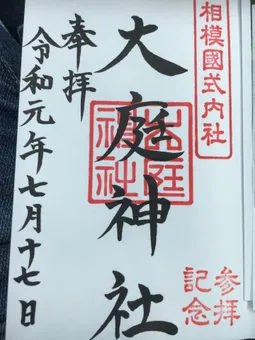 相模國式内社
大庭神社
大庭神社
参拝
記念
奉拝
令和元年七月十七日